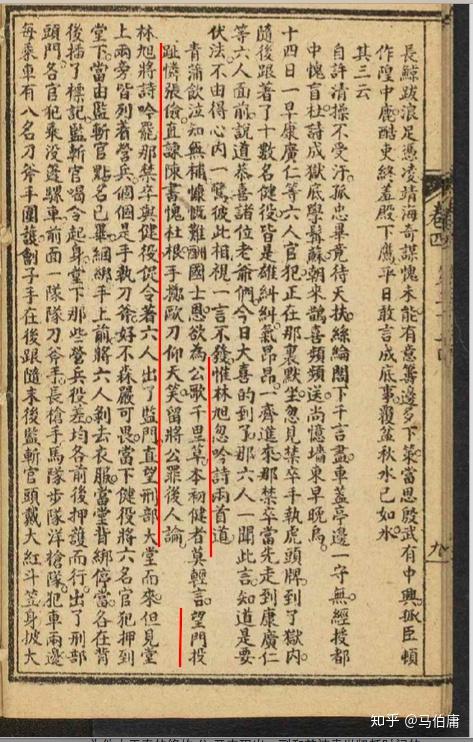 長鯨跋浪足憑凌靖海奇謀愧未能有意籌邊多下策當思殷武有中興孤臣頓
作隍中鹿酷吏終羞殿下鷹平日敢言成底事覆盆秋水已如冰
其三云
自許清操不受汙孤忠畢竟待天扶絲綸閣下千言盡車蓋亭邊一字無經授都
中愧盲杜詩成獄底學髯蘇朝來鵲喜頻頻送尚憶墻東早晚烏
十四日一早康廣仁等六人官犯正在那裏默坐忽見禁卒手執虎頭牌到了獄内
隨後跟着了十數名健役皆是雄糾糾氣昂昂一齊進來那禁卒當先走到康廣仁
等六人面前說道恭喜諸位老爺們今日大喜的到了那六人一聞此言知道是要
伏法不由得心内一驚彼此相視一言不發惟林旭忽吟詩兩首道
青蒲飲泣知無補慷慨難酬國士恩欲為公歌千里草本初健者莫輕言望門投
趾憐張儉直諫陳書愧杜根手擲歐刀仰天笑留將公罪後人論
林旭將詩吟罷那禁卒與健役促令着六人出了監門直望刑部大堂而來但見堂
上兩旁皆列着營兵個個是手執刀斧好不森嚴可畏當下健役將六名官犯押到
堂下當由監斬官點名已畢綑綁手上前將六人剝去衣服當堂背綁停當各在背
後插了標記監斬官喝令起身堂下那些營兵役差均各前後押護而行出了刑部
頭門各官犯乘沒蓬騾車前面一隊隊刀斧手長槍手馬隊步隊洋槍隊犯車兩邊
每乘車有八名刀斧手圍護劊子手在後跟隨末後監斬官頭戴大紅斗笠身披大
卷四
九
知乎 @马伯庸